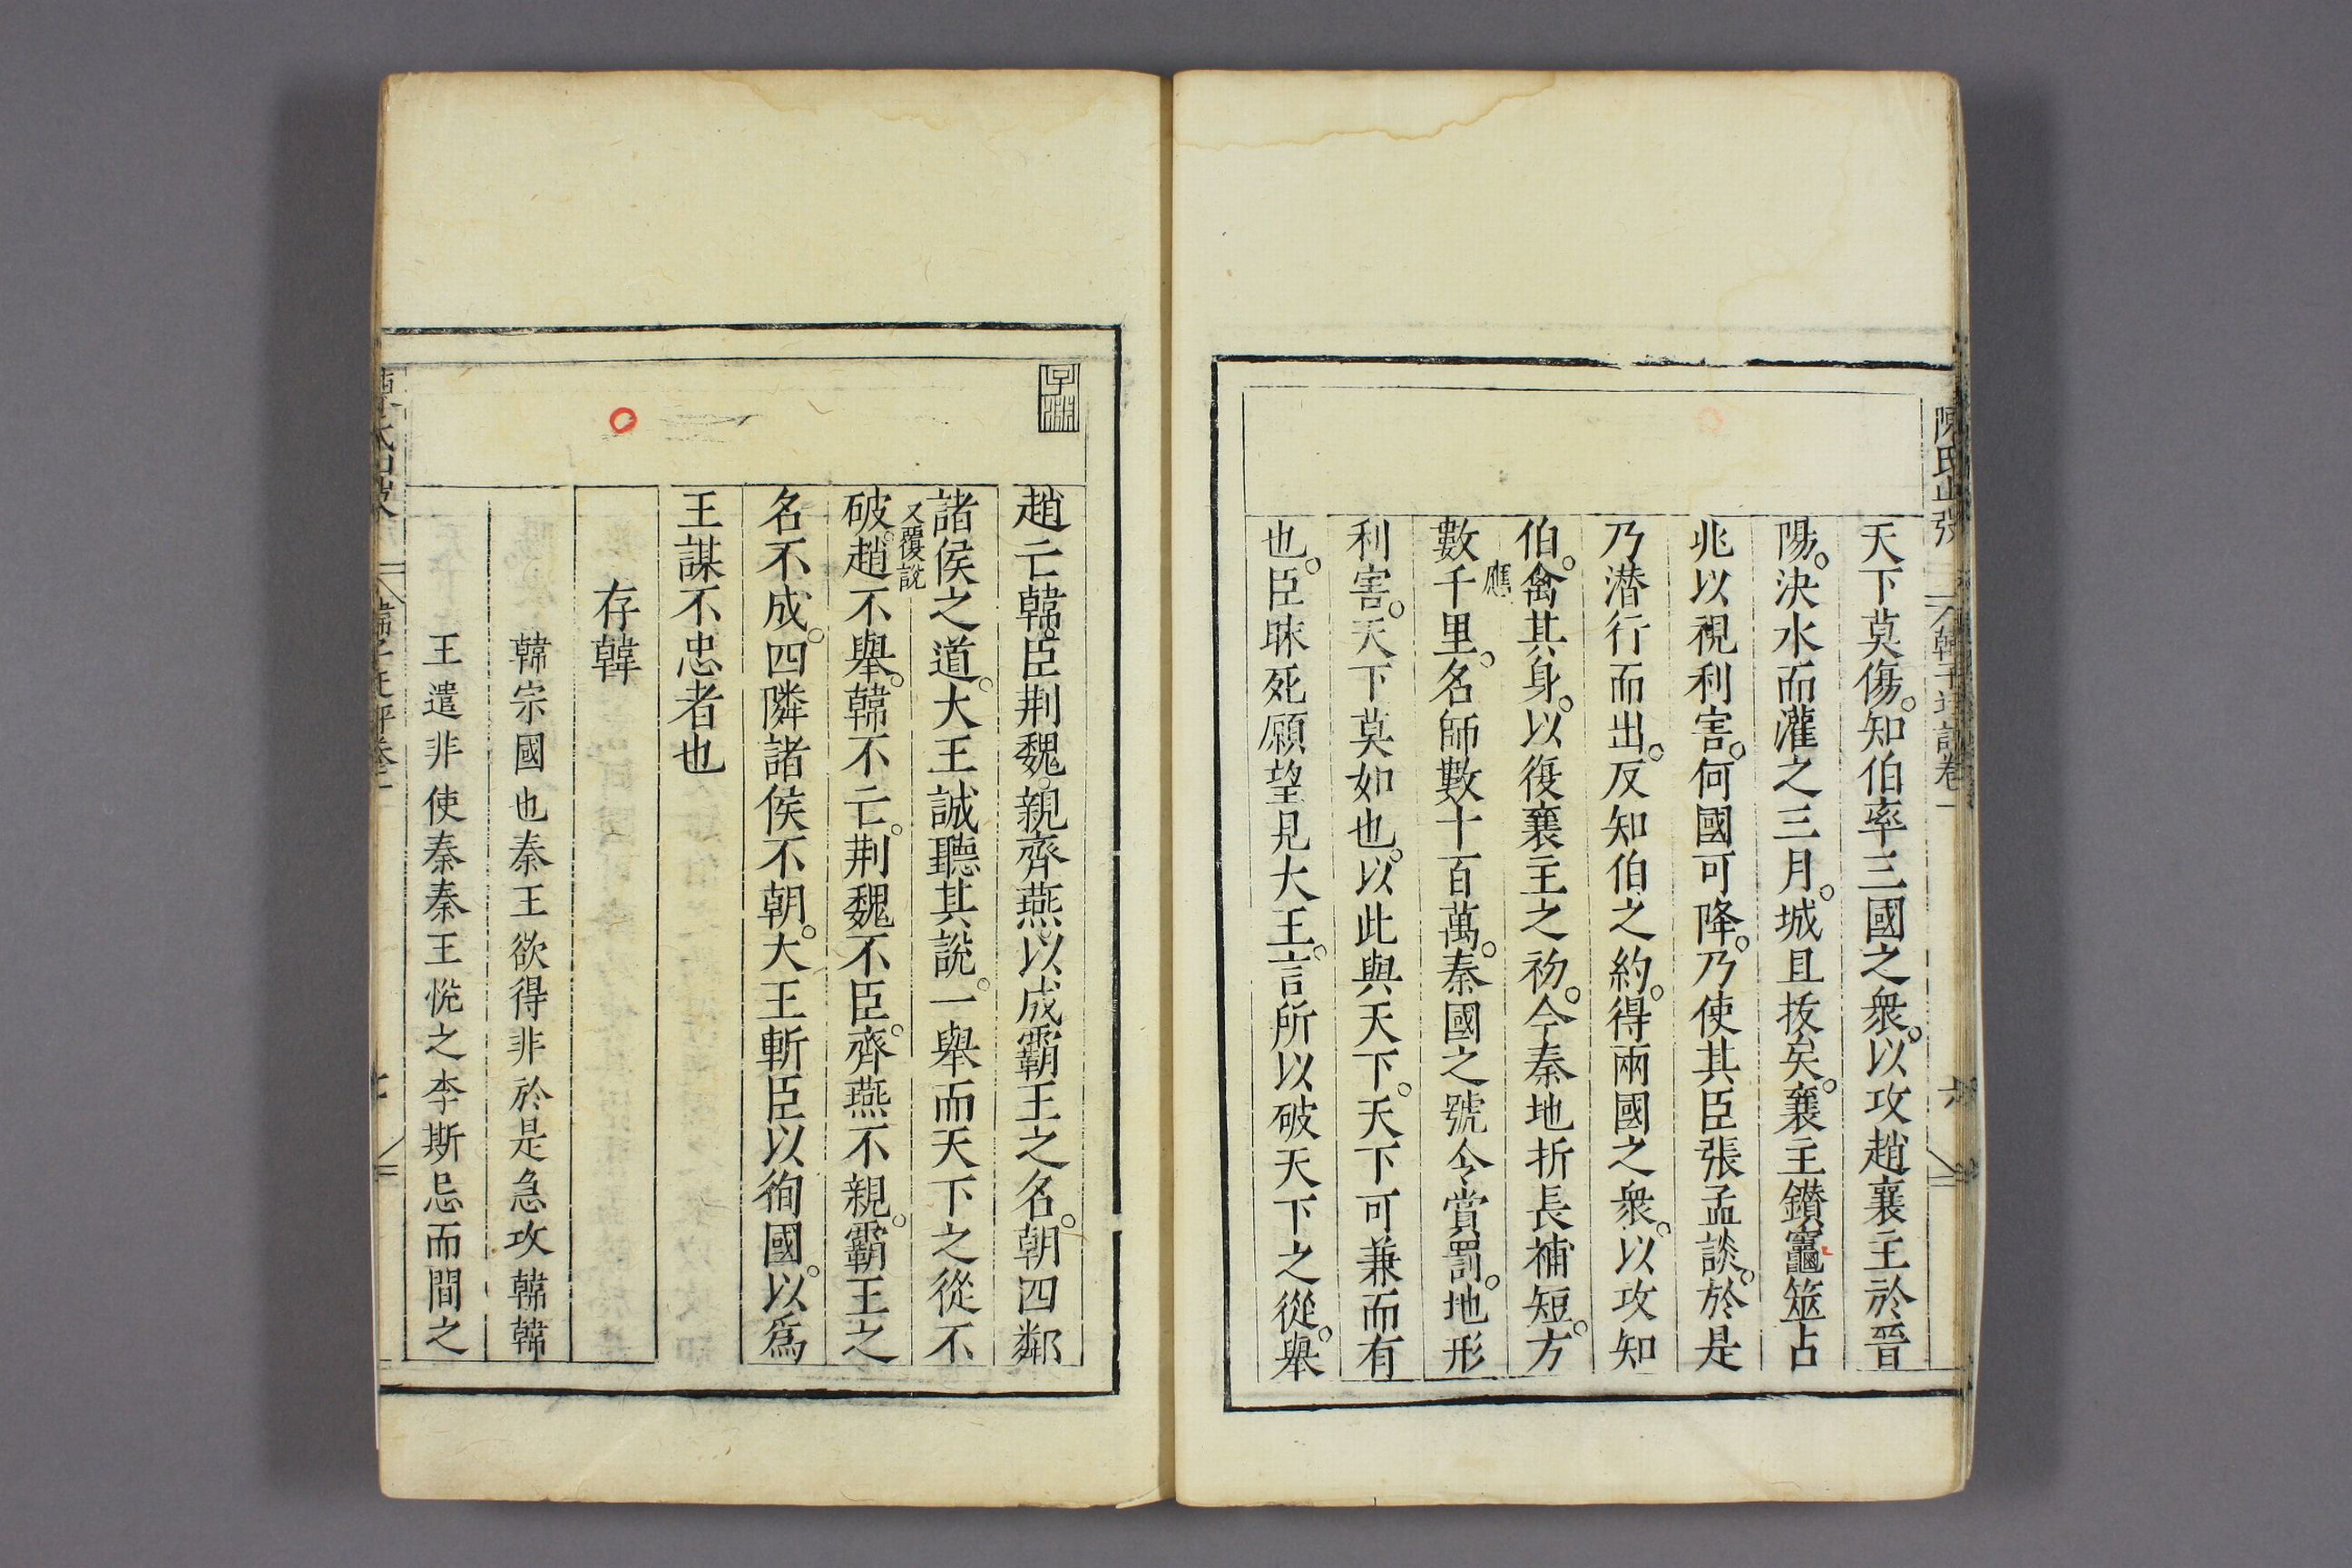 天下莫傷。知伯率三國之衆。以攻趙襄主於晉
陽。決水而灌之三月。城且拔矣。襄主鑚龜筮占
兆以視利害。何國可降。乃使其臣張孟談。於是
乃潛行而出。反知伯之約。得兩國之衆。以攻知
伯。禽其身。以復襄主之初。今秦地折長補短。方
應
數千里。名師數十百萬。秦國之號令賞罰。地形
利害。天下莫如也。以此與天下。天下可兼而有
也。臣昧死願望見大王。言所以破天下之從。舉
趙亡韓。臣荆魏。親齊燕。以成霸王之名。朝四鄰
諸侯之道。大王誠聽其說。一舉而天下之從不
又覆說
破。趙不舉。韓不亡。荆魏不臣。齊燕不親。霸王之
名不成。四隣諸侯不朝。大王斬臣以徇國。以爲
王謀不忠者也
存韓
韓宗國也秦王欲得非於是急攻韓韓
王遣非使秦秦王悅之李斯忌而間之